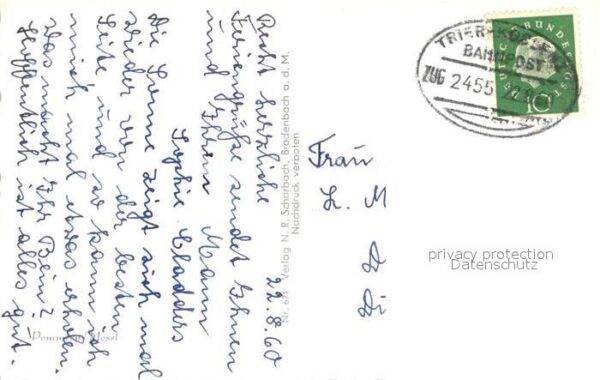 22.8.60
Recht herzliche
Feriengrüße sendet Ihnen
und Ihrem Mann
Sophie Cladders
Die Sonne zeigt sich mal
wieder von der besten
Seite und so kann ich
mich mal etwas erholen.
Was macht Ihr Bein?
Hoffentlich ist alles gut.
Pommern Mosel
Nr. 6/1 Verlag N. R. Scharbach, Bradenbach a. d. M.
Nachdruck verboten
TRIER
BAHNPOST
ZUG 2455
DEUTSCHE BUNDESPOST
10
Frau
L. M
D
Di
privacy protection
Datenschutz